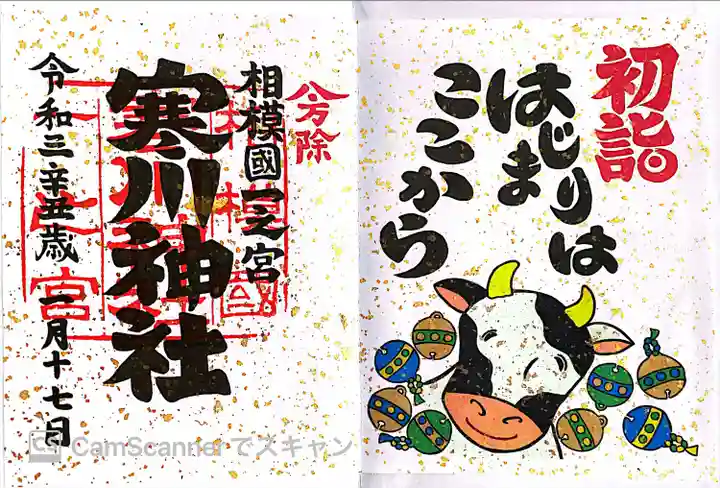 初詣
はじまりは
ここから
八方除
相模國一之宮
寒川神社
令和三辛丑歳 一月十七日
CamScannerでスキャン